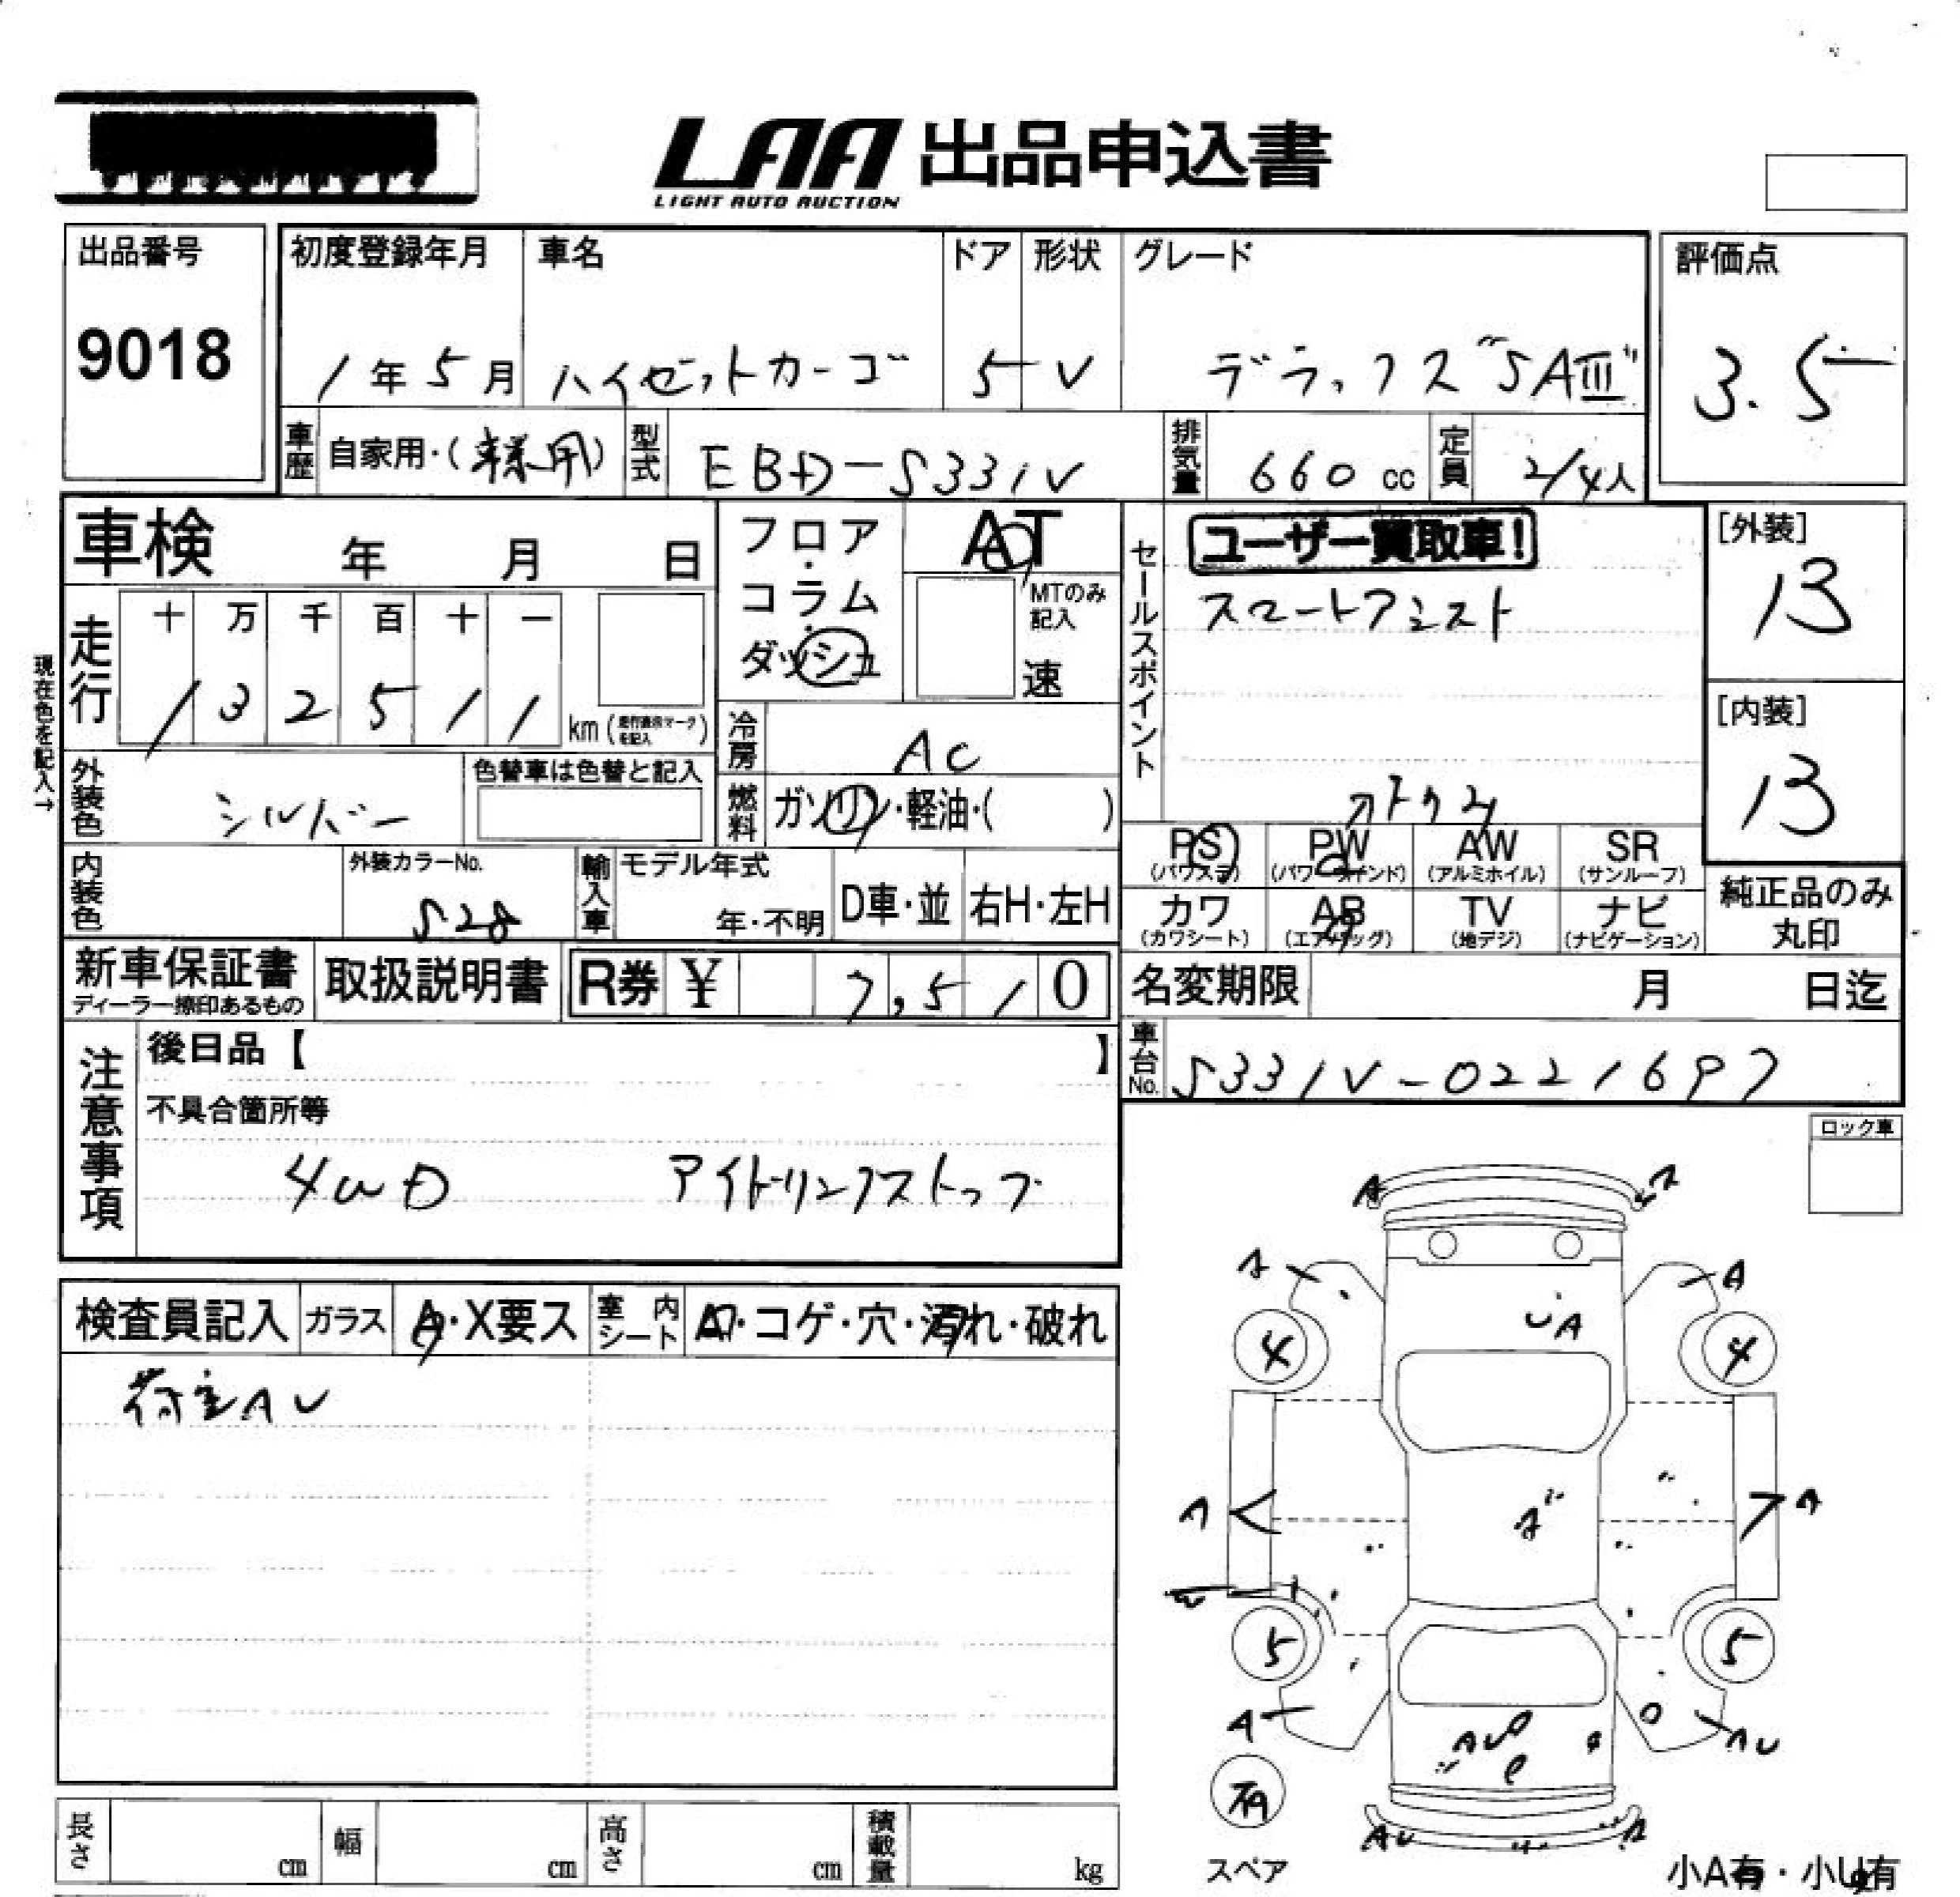 LAA 出品申込書
LIGHT AUTO AUCTION
出品番号 初度登録年月 車名 ドア 形状 グレード 評価点
9018 1年5月 ハイゼットカーゴ 5 V デラックス"SAⅢ" 3.5
車歴 自家用・(事業用) 型式 EBD-S331V 排気量 660 cc 定員 2/4人
車検 年 月 日 フロア・コラム・ダッシュ AT MTのみ記入 速
走行 十 万 千 百 十 一
1 3 2 5 1 1 km (走行直示マークを記入)
現在色を記入→
冷房 AC
外装色 シルバー 色替車は色替と記入 燃料 ガソリン・軽油・( )
内装色 外装カラーNo. S28 輸入車 モデル年式 年・不明 D車・並 右H・左H
セールスポイント
ユーザー買取車!
スマートアシスト
[外装] 13
[内装] 13
PS (パワステ) PW (パワーウインド) AW (アルミホイル) SR (サンルーフ)
カワ (カワシート) AB (エアバッグ) TV (地デジ) ナビ (ナビゲーション)
純正品のみ丸印
新車保証書 ディーラー捺印あるもの 取扱説明書 R券 ¥ 7,510
名変期限 月 日迄
車台No. S331V-0221697
注意事項
後日品【 】
不具合箇所等
4WD アイドリングストップ
ロック車
検査員記入 ガラス A・X要ス 室内シート コゲ・穴・汚れ・破れ
荷室AU
A A
A A
4 UA 4
A A A
5 5
A AU AU
有
スペア
AU A
小A有・小U有
長さ cm 幅 cm 高さ cm 積載量 kg